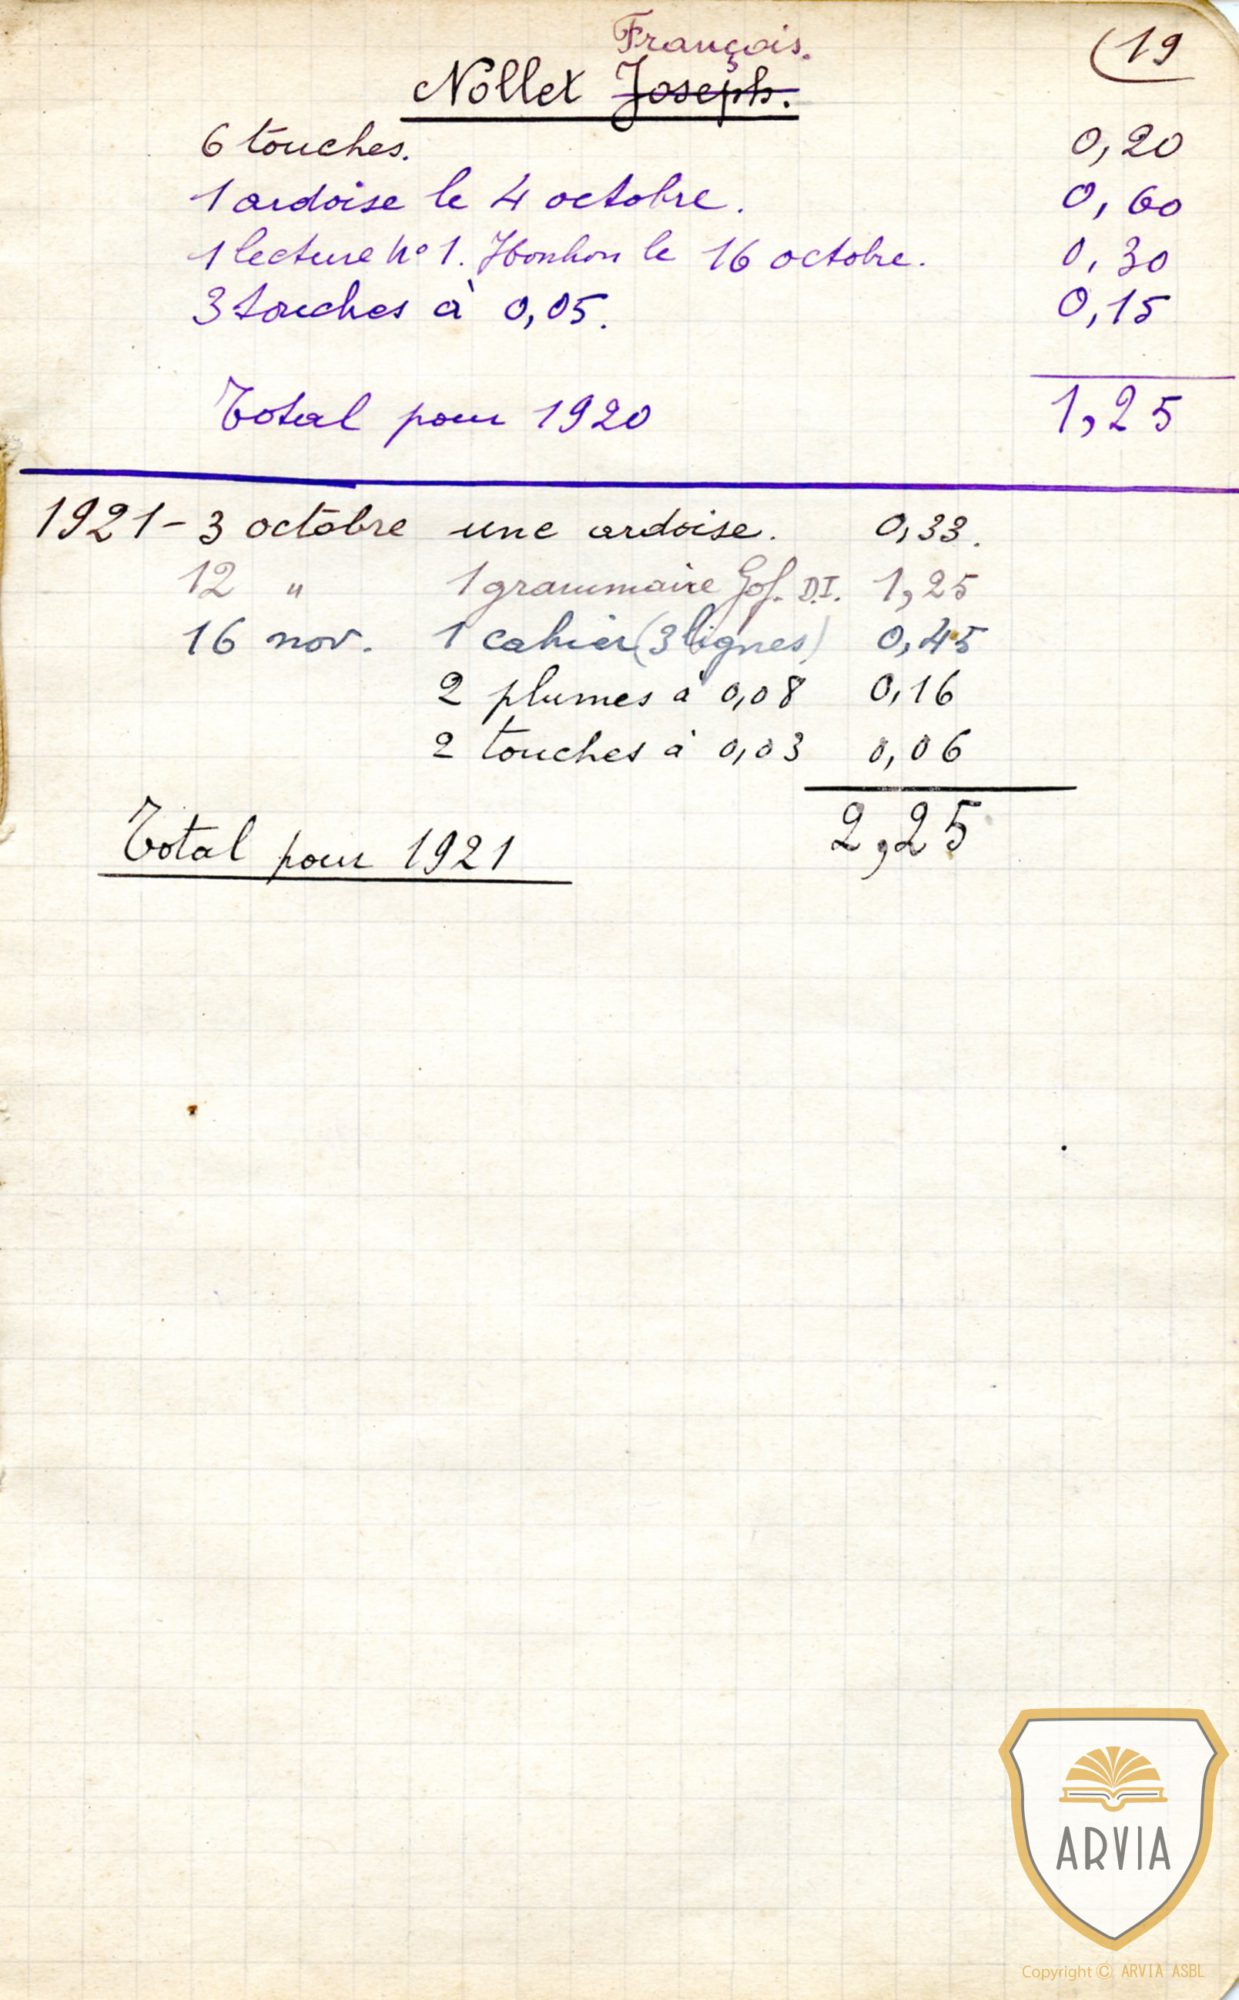 François.
(19
Nollet Joseph.
6 touches. 0,20
1 ardoise le 4 octobre. 0,60
1 lecture No 1. Honhon le 16 octobre. 0,30
3 touches à 0,05. 0,15
Total pour 1920 1,25
1921 - 3 octobre une ardoise. 0,33.
12 " 1 grammaire Gof. D.I. 1,25
16 nov. 1 cahier (3 lignes) 0,45
2 plumes à 0,08 0,16
2 touches à 0,03 0,06
Total pour 1921 2,25
ARVIA
Copyright © ARVIA ASBL